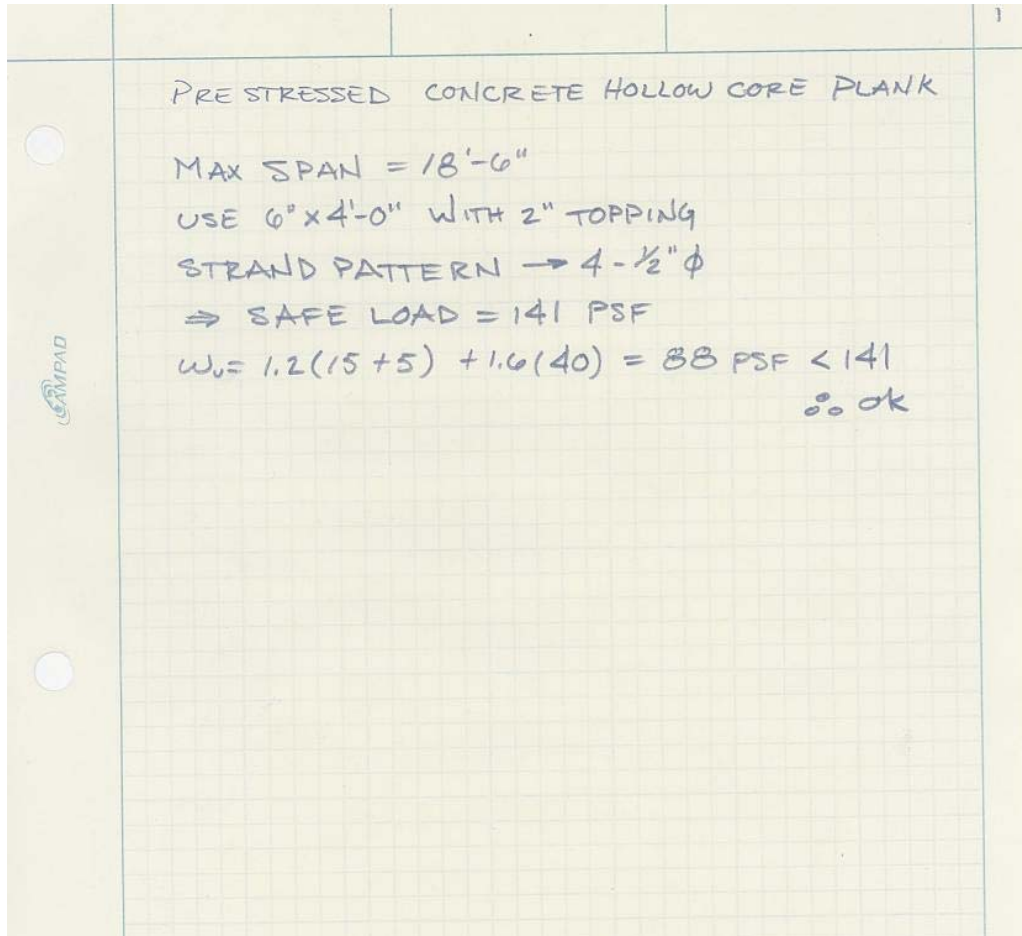 1
PRESTRESSED CONCRETE HOLLOW CORE PLANK
MAX SPAN = 18'-6"
USE 6" x 4'-0" WITH 2" TOPPING
STRAND PATTERN → 4 - 1/2" φ
⇒ SAFE LOAD = 141 PSF
Wu = 1.2(15 + 5) + 1.6(40) = 88 PSF < 141
∴ ok
AMPAD